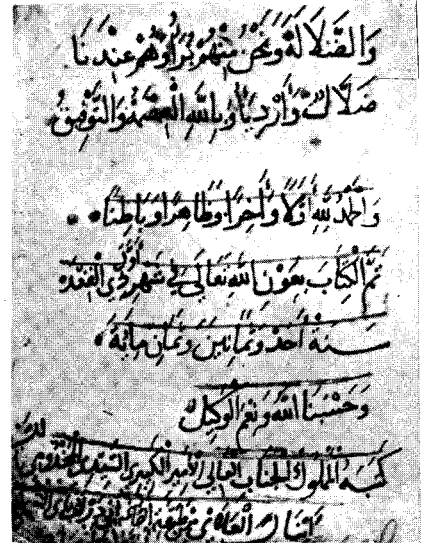 وَالضَّلَالَةَ وَنَحْنُ مِنْهُمْ بُرَآءُ وَهُمْ عِنْدَنَا
ضُلَّالٌ وَأَرْدِيَاءُ وَبِاللَّهِ الْعِصْمَةُ وَالتَّوْفِيقُ
وَالْحَمْدُ لِلَّهِ أَوَّلًا وَآخِرًا وَظَاهِرًا وَبَاطِنًا
تَمَّ الْكِتَابُ بِعَوْنِ اللَّهِ تَعَالَى فِي أَوَّلِ شَهْرِ ذِي الْقَعْدَه
سَنَةَ أَحَدٍ وَثَمَانِينَ وَثَمَانِ مِائَةٍ
وَحَسْبُنَا اللَّهُ وَنِعْمَ الْوَكِيلُ
كتبه المملوك الجناب العالي الأمير الكبيري السيدي
اينال